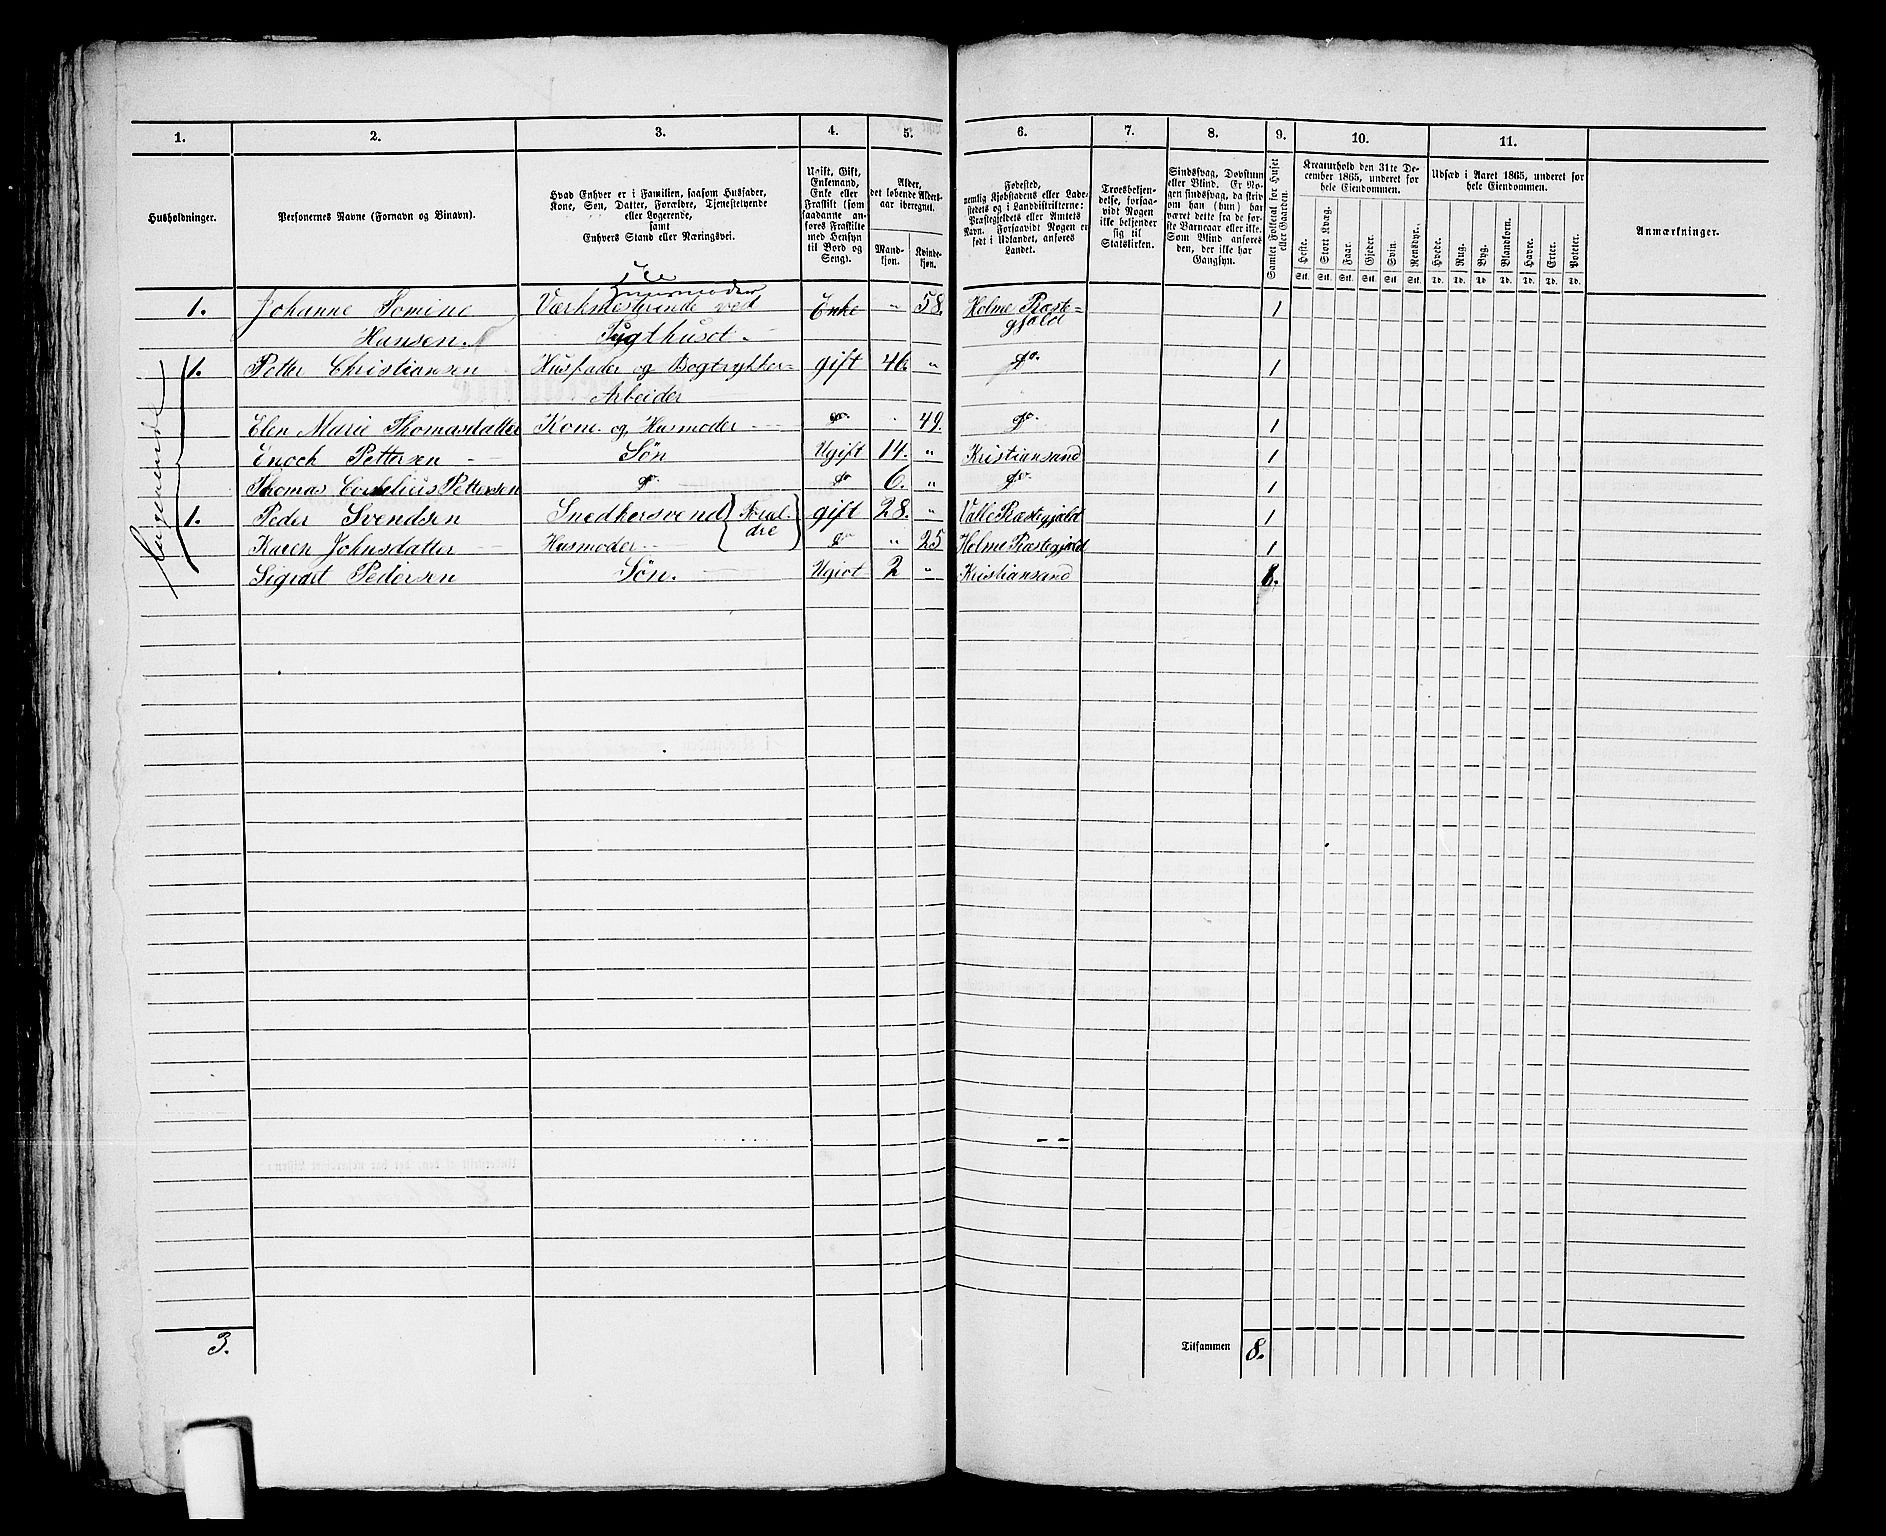 1. 2. 3. 4. 5. 6. 7. 8. 9. 10. 11.
Husholdninger.
Personernes Navne (Fornavn og Binavn).
Hvad Enhver er i Familien, saasom Husfader,
Kone, Søn, Datter, Forældre, Tjenestetyende
eller Logerende,
samt
Enhvers Stand eller Næringsvei.
Ugift, Gift,
Enkemand,
Enke eller
Fraskilt (som
saadanne an-
føres Fraskilte
med Hensyn
til Bord og
Seng).
Alder,
det løbende Alders-
aar iberegnet.
Mand-
kjøn.
Kvinde-
kjøn.
Fødested,
nemlig Kjøbstadens eller Lade-
stedets og i Landdistrikterne:
Præstegjeldets eller Annexets
Navn. Forsaavidt Nogen er
født i Udlandet, anføres
Landet.
Troesbekjen-
delse, forsaa-
vidt Nogen
ikke bekjender
sig til
Statskirken.
Sindssvag, Døvstum
eller Blind. Er No-
gen sindssvag, da skriv
om han (hun) har
været dette fra de før-
ste Barneaar eller ikke.
Som Blind anføres
den, der ikke har
Gangsyn.
Samlet Folketal for Huset
eller Gaarden.
Kreaturhold den 31te De-
cember 1865, underet for
hele Eiendommen.
Heste. Stort Kvæg. Faar. Gjeder. Svin. Rensdyr.
Stk. Stk. Stk. Stk. Stk. Stk.
Udsæd i Aaret 1865, underet for
hele Eiendommen.
Hvede. Rug. Byg. Blandkorn. Havre. Erter. Poteter.
Td. Td. Td. Td. Td. Td. Td.
Anmærkninger.
1. Johanne Tomine Værkmesterinde ved Enke " 58. Holme Præste- 1
Hansen. Tugthuset. gjæld
1. Petter Christiansen Husfader og Bogtrykker- gift 46. " do. 1
Arbeider
Elen Marie Thomasdatter Kone og Husmoder do. 49. do. 1
Enoch Pettersen Søn Ugift 14. " Kristiansand 1
Thomas Cornelius Pettersen do. do. 6. " do. 1
1. Peder Svendsen Snedkersvend gift 28. " Valle Præstegjæld 1
Karen Johnsdatter Husmoder do. " 25 Holme Præstegjæld 1
Sigvart Pedersen Søn. Ugivt 2 " Kristiansand 1.
3. Tilsammen 8.